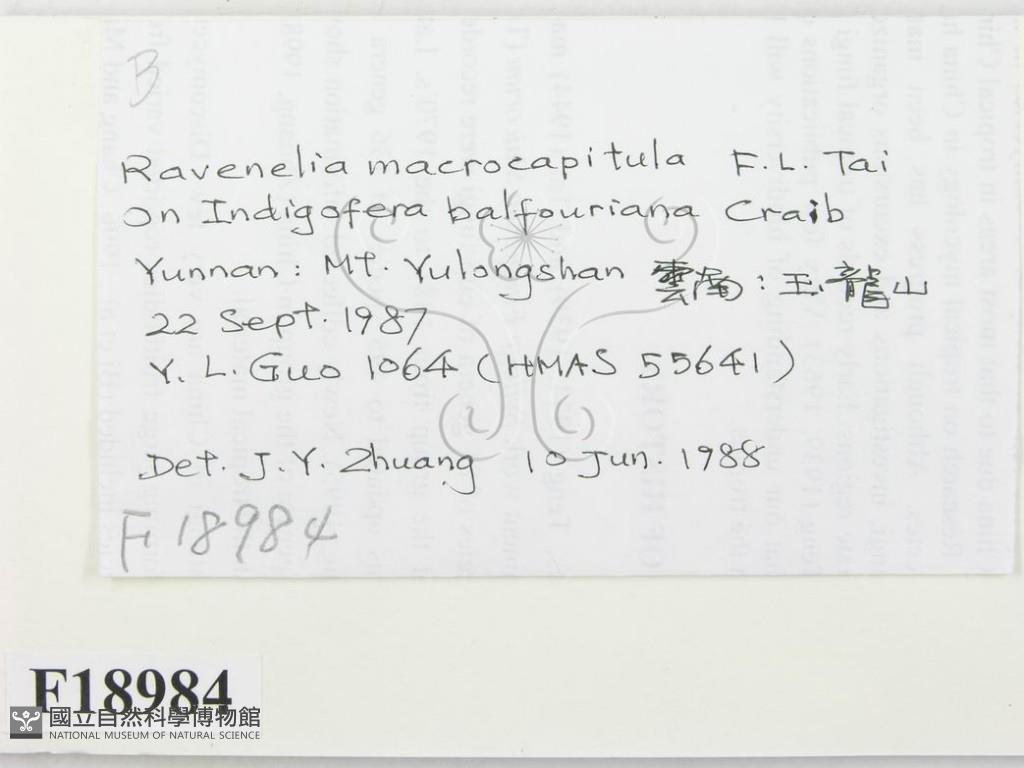 B
Ravenelia macrocapitula F.L. Tai
On Indigofera balfouriana Craib
Yunnan: Mt. Yulongshan 雲南: 玉龍山
22 Sept. 1987
Y. L. Guo 1064 (HMAS 55641)
Det. J. Y. Zhuang 10 Jun. 1988
F 18984
F18984
國立自然科學博物館
NATIONAL MUSEUM OF NATURAL SCIENCE